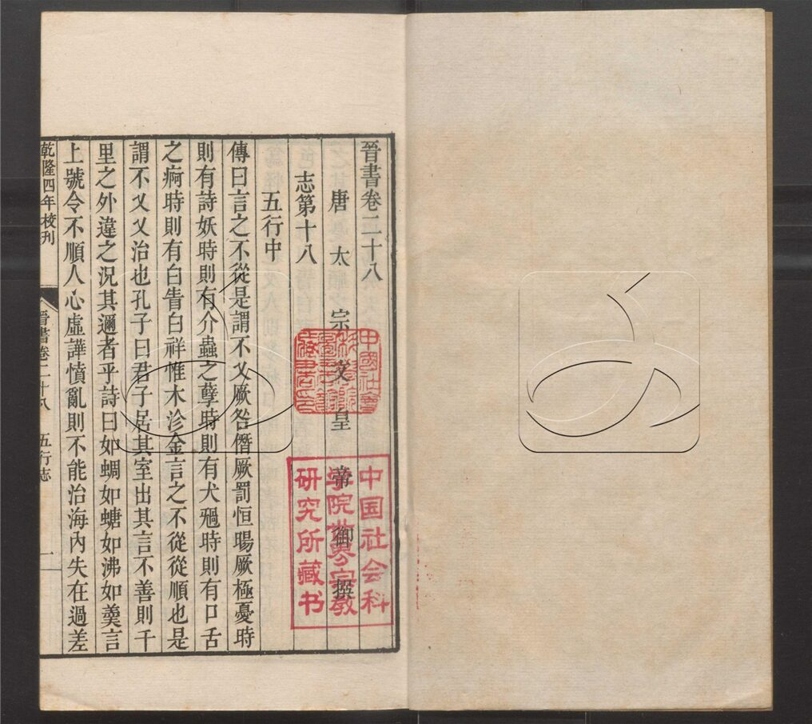 晉書卷二十八
唐太宗文皇帝御撰
志第十八
五行中
傳曰言之不從是謂不乂厥咎僭厥罰恒暘厥極憂時
則有詩妖時則有介蟲之孽時則有犬禍時則有口舌
之痾時則有白眚白祥惟木沴金言之不從從順也是
謂不乂乂治也孔子曰君子居其室出其言不善則千
里之外違之況其邇者乎詩曰如蜩如螗如沸如羹言
上號令不順人心虛譁憤亂則不能治海內失在過差
乾隆四年校刊
晉書卷二十八 五行志 一
中国社会科
学院世界宗教
研究所藏书